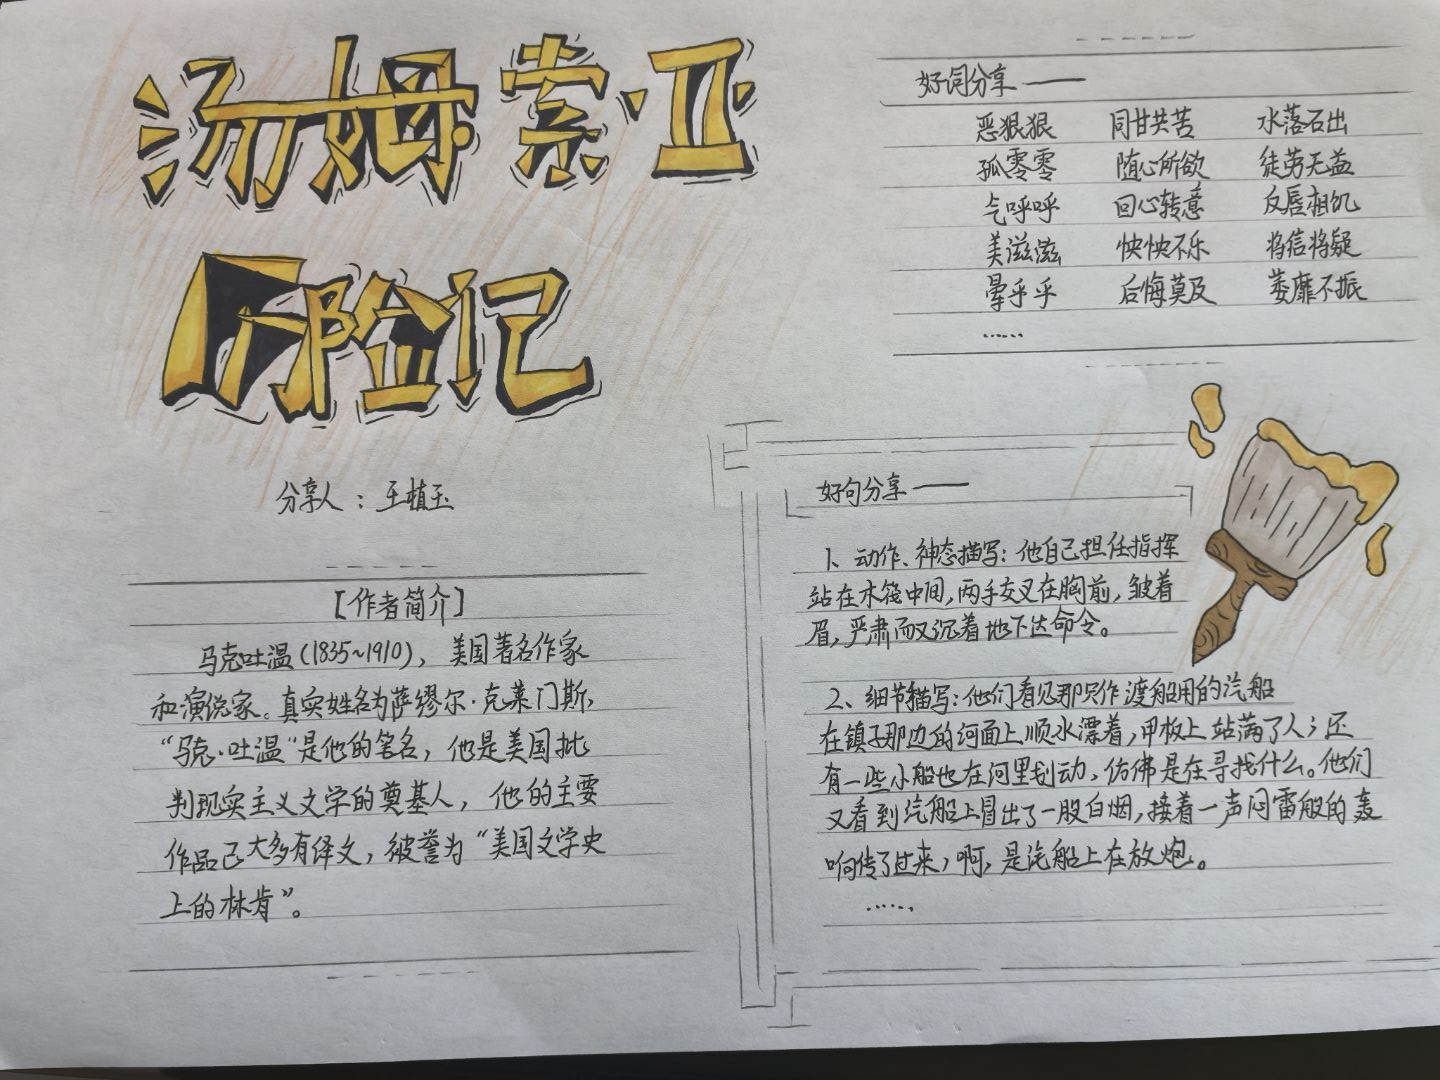 汤姆·索亚
历险记
分享人：王植玉
【作者简介】
马克吐温(1835~1910)，美国著名作家
和演说家。真实姓名为萨缪尔·克莱门斯，
“马克·吐温”是他的笔名，他是美国批
判现实主义文学的奠基人，他的主要
作品已大多有译文，被誉为“美国文学史
上的林肯”。
好词分享——
恶狠狠 同甘共苦 水落石出
孤零零 随心所欲 徒劳无益
气呼呼 回心转意 反唇相讥
美滋滋 怏怏不乐 将信将疑
晕乎乎 后悔莫及 萎靡不振
……
好句分享——
1、动作、神态描写：他自己担任指挥
站在木筏中间，两手交叉在胸前，皱着
眉，严肃而又沉着地下达命令。
2、细节描写：他们看见那只作渡船用的汽船
在镇子那边的河面上顺水漂着，甲板上站满了人；还
有一些小船也在河里划动，仿佛是在寻找什么。他们
又看到汽船上冒出了一股白烟，接着一声闷雷般的轰
响传了过来，啊，是汽船上在放炮。
……